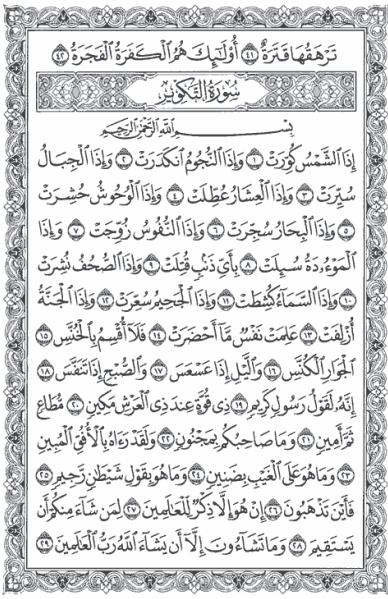 تَرْهَقُهَا قَتَرَةٌ ٤١ أُوْلَـٰٓئِكَ هُمُ ٱلْكَفَرَةُ ٱلْفَجَرَةُ ٤٢
سُورَةُ التَّكْوِيرِ
بِسْمِ ٱللَّهِ ٱلرَّحْمَـٰنِ ٱلرَّحِيمِ
إِذَا ٱلشَّمْسُ كُوِّرَتْ ١ وَإِذَا ٱلنُّجُومُ ٱنكَدَرَتْ ٢ وَإِذَا ٱلْجِبَالُ
سُيِّرَتْ ٣ وَإِذَا ٱلْعِشَارُ عُطِّلَتْ ٤ وَإِذَا ٱلْوُحُوشُ حُشِرَتْ
٥ وَإِذَا ٱلْبِحَارُ سُجِّرَتْ ٦ وَإِذَا ٱلنُّفُوسُ زُوِّجَتْ ٧ وَإِذَا
ٱلْمَوْءُۥدَةُ سُئِلَتْ ٨ بِأَيِّ ذَنۢبٍ قُتِلَتْ ٩ وَإِذَا ٱلصُّحُفُ نُشِرَتْ
١٠ وَإِذَا ٱلسَّمَآءُ كُشِطَتْ ١١ وَإِذَا ٱلْجَحِيمُ سُعِّرَتْ ١٢ وَإِذَا ٱلْجَنَّةُ
أُزْلِفَتْ ١٣ عَلِمَتْ نَفْسٌ مَّآ أَحْضَرَتْ ١٤ فَلَآ أُقْسِمُ بِٱلْخُنَّسِ ١٥
ٱلْجَوَارِ ٱلْكُنَّسِ ١٦ وَٱلَّيْلِ إِذَا عَسْعَسَ ١٧ وَٱلصُّبْحِ إِذَا تَنَفَّسَ ١٨
إِنَّهُۥ لَقَوْلُ رَسُولٍ كَرِيمٍ ١٩ ذِى قُوَّةٍ عِندَ ذِى ٱلْعَرْشِ مَكِينٍ ٢٠ مُّطَاعٍ
ثَمَّ أَمِينٍ ٢١ وَمَا صَاحِبُكُم بِمَجْنُونٍ ٢٢ وَلَقَدْ رَءَاهُ بِٱلْأُفُقِ ٱلْمُبِينِ
٢٣ وَمَا هُوَ عَلَى ٱلْغَيْبِ بِضَنِينٍ ٢٤ وَمَا هُوَ بِقَوْلِ شَيْطَـٰنٍ رَّجِيمٍ ٢٥
فَأَيْنَ تَذْهَبُونَ ٢٦ إِنْ هُوَ إِلَّا ذِكْرٌ لِّلْعَـٰلَمِينَ ٢٧ لِمَن شَآءَ مِنكُمْ أَن
يَسْتَقِيمَ ٢٨ وَمَا تَشَآءُونَ إِلَّآ أَن يَشَآءَ ٱللَّهُ رَبُّ ٱلْعَـٰلَمِينَ ٢٩